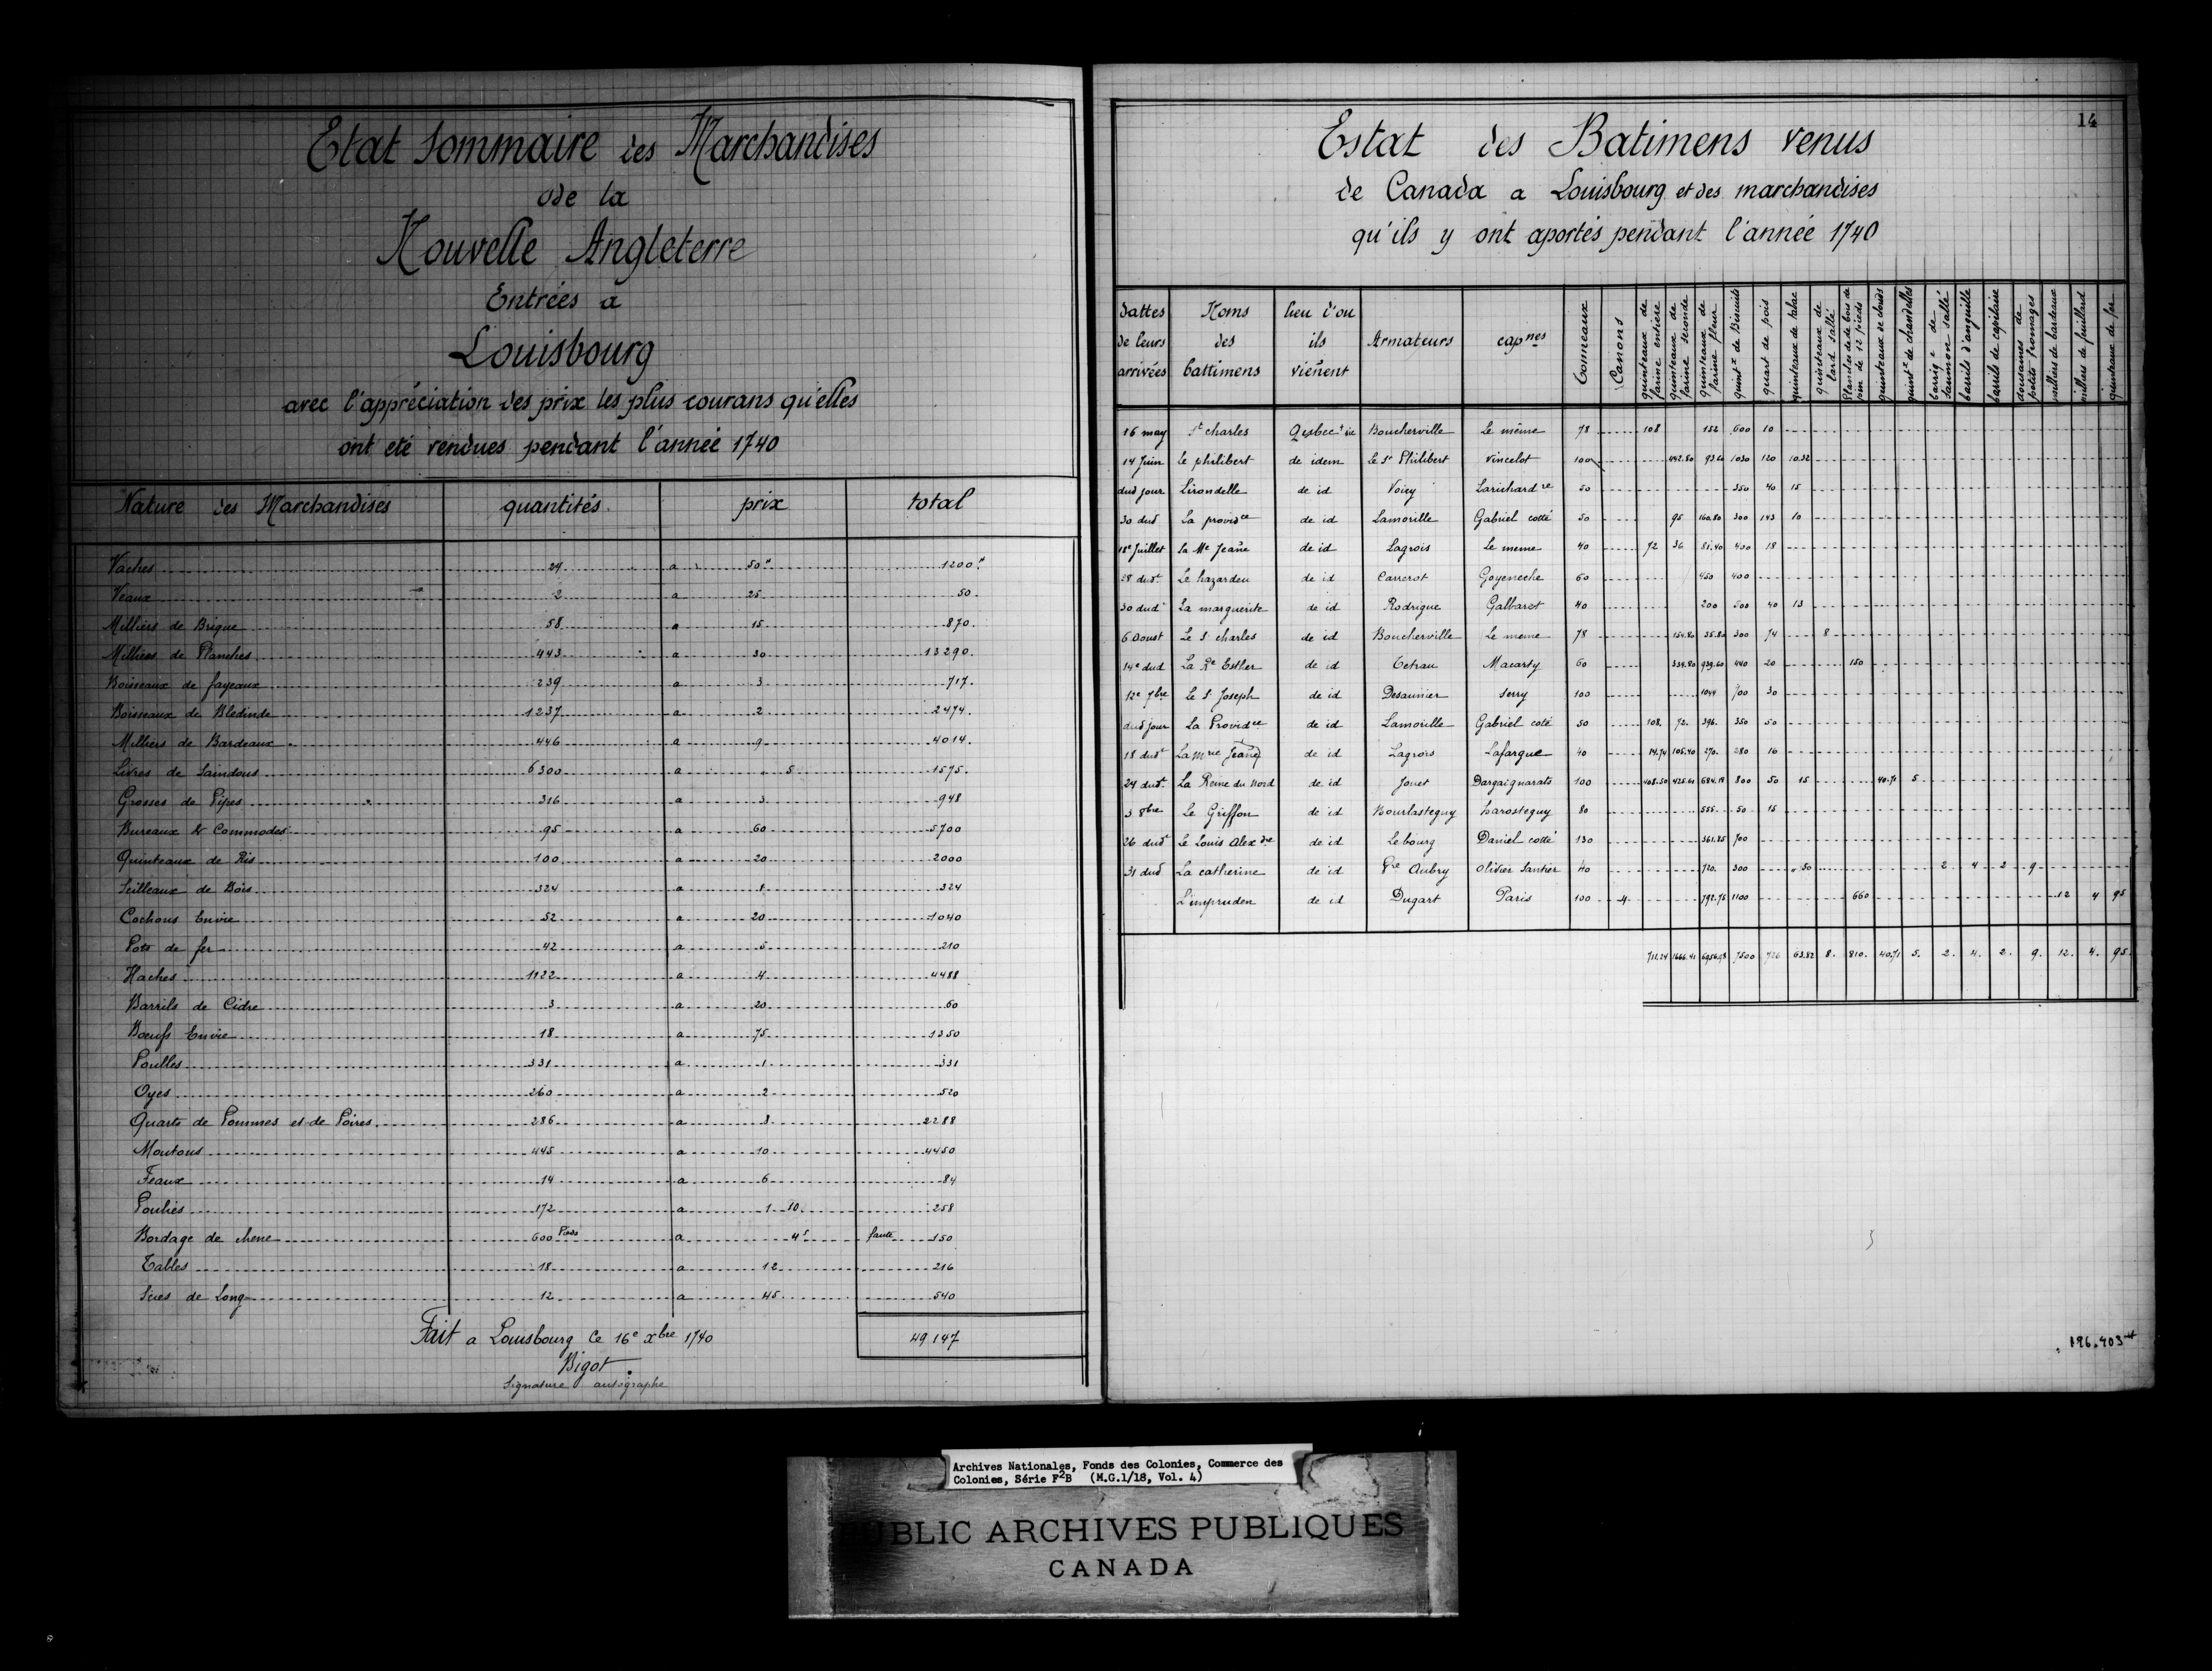 Etat Sommaire des Marchandises
de la
Nouvelle Angleterre
Entrées a
Louisbourg
avec l'appréciation des prix les plus courans qu'elles
ont eté vendues pendant l'année 1740
Nature des Marchandises quantités prix total
Vaches 24 a 50# 1200#
Veaux 2 a 25 50.
Milliers de Brique 58 a 15 870.
Milliers de Planches 443 a 30 13290.
Boisseaux de fayeaux 239 a 3 717.
Boisseaux de Bledinde 1237 a 2 2474.
Milliers de Bardeaux 446 a 9 4014.
Livres de Saindous 6300 a " 5 1575.
Grosses de Pipes 316 a 3 948
Bureaux & Commodes 95 a 60 5700
Quinteaux de Ris 100 a 20 2000
Seilleaux de Bois 324 a 1 324
Cochons Envie 52 a 20 1040
Pots de fer 42 a 5 210
Haches 1122 a 4 4488
Barrils de Cidre 3 a 20 60
Boeufs Envie 18 a 75 1350
Poulles 331 a 1 331
Oyes 260 a 2 520
Quarts de Pommes et de Poires 286 a 8 2288
Moutons 445 a 10 4450
Feaux 14 a 6 84
Poulies 172 a 1 10 258
Bordage de chene 600 Pieds a 4s faute 150
Tables 18 a 12 216
Scies de Long 12 a 45 540
49147
Fait a Louisbourg Ce 16e xbre 1740
Bigot
Signature autographe
14
Estat des Batimens venus
de Canada a Louisbourg et des marchandises
qu'ils y ont aportés pendant l'année 1740
dattes de leurs arrivées Noms des battimens lieu d'ou ils viënent Armateurs capnes Tonneaux Canons quinteaux de farine entiere quinteaux de farine seconde quinteaux de farine fleur quintx de Biscuits quart de pois quinteaux de tabac quinteaux de lard sallé Planches de bois de pin de 12 pieds quinteaux de clouds quintx de chandelles barriqe de saumon sallé barrils d'anguille barrils de capilaire dousaines de petits fromages milliers de bardeaux milliers de feuillard quinteaux de fer
16 may St charles Qesbec Boucherville Le même 78 108 152 600 10
14 Juin le philibert de idem Le Sr Philibert Vincelot 100 442.80 93.60 1030 120 10.32
dud jour Lirondelle de id Voicy Larichardre 50 350 40 15
30 dud La providce de id Lamorille Gabriel cotté 50 95 160.80 300 143 10
18e Juillet La Me Jeañe de id Lagrois Le meme 40 72 36 81.40 400 18
28 dudt Le hazardeu de id Carrerot Goyeneche 60 450 400
30 dudt La marguerite de id Rodrigue Galbaret 40 200 500 40 13
6 Aoust Le S. charles de id Boucherville Le meme 78 154.80 35.80 300 74 8
14e dud La Re Esther de id Tetrau Macarty 60 334.80 939.60 440 20 150
12e 7bre Le S. Joseph de id Desaunier Serry 100 1044 700 30
dud jour La Providce de id Lamorille Gabriel coté 50 108. 72. 396. 350 50
18 dudt La mrie Jeañe de id Lagrois Lafargue 40 14.74 105.40 270. 280 16
24 dudt La Reine du Nord de id Jouet Dargaignarats 100 408.50 425.61 684.18 800 50 15 40.71 5
3 8bre Le Griffon de id Bourlasteguy Larosteguy 80 555. 50 15
26 dudt Le Louis Alexdre de id Lebourg Daniel cotté 130 361.85 700
31 dud La catherine de id Pre Aubry Olivier Santier 40 720. 300 "50 2 4 2 9
L'impruden de id Dugart Paris 100 4 792.75 1100 660 12 4 95
711.24 1666.41 6956.98 7500 726 63.82 8. 810. 40.71 5. 2. 4. 2. 9. 12. 4. 95.
196.403#
Archives Nationales, Fonds des Colonies, Commerce des
Colonies, Série F2B (M.G.1/18, Vol. 4)
PUBLIC ARCHIVES PUBLIQUES
CANADA